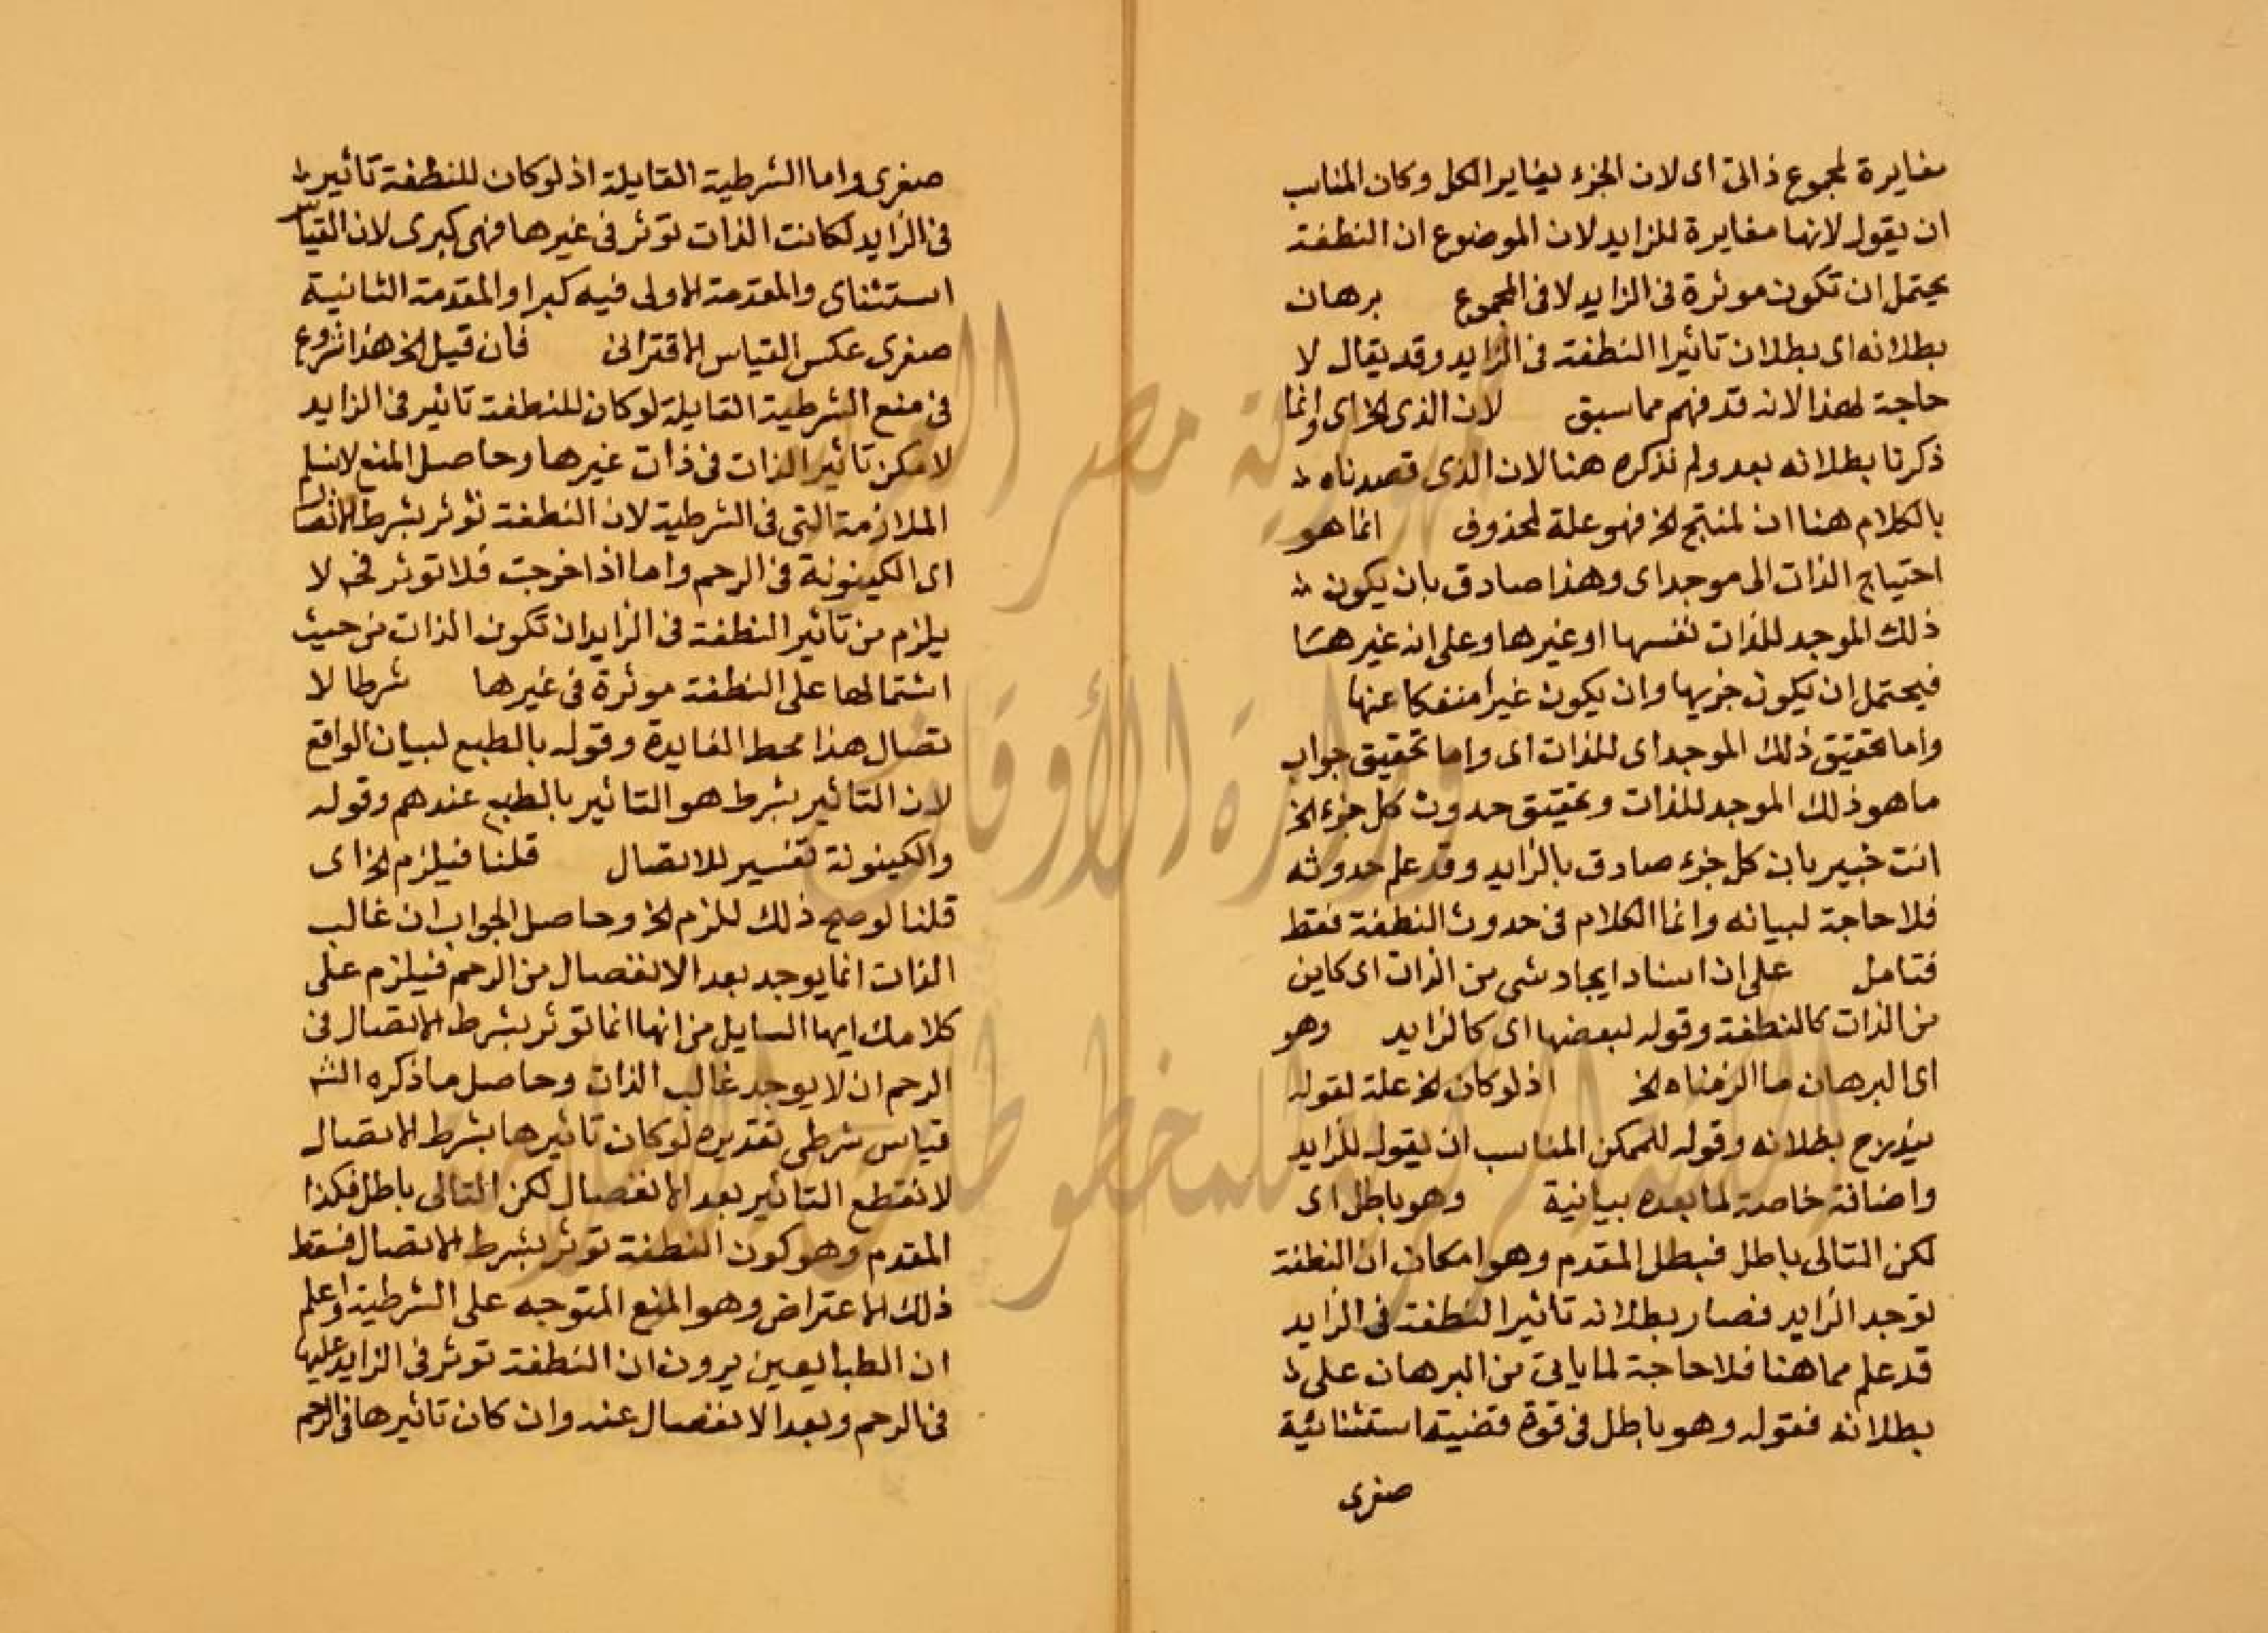 مغايرة لمجموع ذاتى اى لان الجزء يغاير الكل وكان المناسب
ان يقول لانها مغايرة للزايد لان الموضوع ان النطفة
يحتمل ان تكون موثرة فى الزايد لا فى المجموع برهان
بطلانه اى بطلان تاثير النطفة فى الزايد وقد يقال لا
حاجة لهذا لانه قد فهم مما سبق لان الذى الخ اى وانما
ذكرنا بطلانه بعد ولم نذكره هنا لان الذى قصدناه
بالكلام هنا ان لمنتج الخ فهو علة لمحذوف انما هو
احتياج الذات الى موجد اى وهذا صادق بان يكون
ذلك الموجد للذات نفسها او غيرها وعلى انه غيرها
فيحتمل ان يكون جزيها وان يكون غيرا منفكا عنها
واما تحقيق ذلك الموجد اى للذات اى واما تحقيق جواب
ما هو ذلك الموجد للذات وتحقيق حدوث كل جزء الخ
انت خبير بان كل جزء صادق بالزايد وقد علم حدوثه
فلا حاجة لبيانه وانما الكلام فى حدوث النطفة فقط
فتامل على ان اسناد ايجاد شى من الذات اى كاين
من الذات كالنطفة وقوله لبعضها اى كالزايد وهو
اى البرهان ما الزمناه الخ اذ لو كان الخ علة لقوله
يندرج بطلانه وقوله للممكن المناسب ان يقول للزايد
واضافة خاصة لما بعده بيانية وهو باطل اى
لكن التالى باطل فبطل المقدم وهو امكان ان النطفة
توجد الزايد فصار بطلانه تاثير النطفة فى الزايد
قد علم مما هنا فلا حاجة لما ياتى من البرهان على
بطلانه فقوله وهو باطل فى قوة قضية استثنائية
صغرى
صغرى واما الشرطية القايلة اذ لو كان للنطفة تاثير
فى الزايد لكانت الذات توثر فى غيرها فهى كبرى لان القياس
استثناى والمقدمة الاولى فيه كبرا والمقدمة الثانية
صغرى عكس القياس الاقترانى فان قيل الخ هذا شروع
فى منع الشرطية القايلة لو كان للنطفة تاثير فى الزايد
لامكن تاثير الذات فى ذات غيرها وحاصل المنع لا نسلم
الملازمة التى فى الشرطية لان النطفة توثر بشرط الاتصال
اى الكينونة فى الرحم واما اذا خرجت فلا توثر فح لا
يلزم من تاثير النطفة فى الزايد ان تكون الذات من حيث
اشتمالها على النطفة موثرة فى غيرها شرطا لا
تصال هذا محط الفايدة وقوله بالطبع لبيان الواقع
لان التاثير بشرط هو التاثير بالطبع عندهم وقوله
والكينونة تفسير للاتصال قلنا فيلزم الخ اى
قلنا لو صح ذلك للزم الخ وحاصل الجواب ان غالب
الذات انما يوجد بعد الانفصال من الرحم فيلزم على
كلامك ايها السايل من انها انما توثر بشرط الاتصال فى
الرحم ان لا يوجد غالب الذات وحاصل ما ذكره الش
قياس شرطى تقديره لو كان تاثيرها بشرط الاتصال
لانقطع التاثير بعد الانفصال لكن التالى باطل فكذا
المقدم وهو كون النطفة توثر بشرط الاتصال فسقط
ذلك الاعتراض وهو المنع المتوجه على الشرطية واعلم
ان الطبايعيين يرون ان النطفة توثر فى الزايد عليها
فى الرحم وبعد الانفصال عنه وان كان تاثيرها فى الرحم